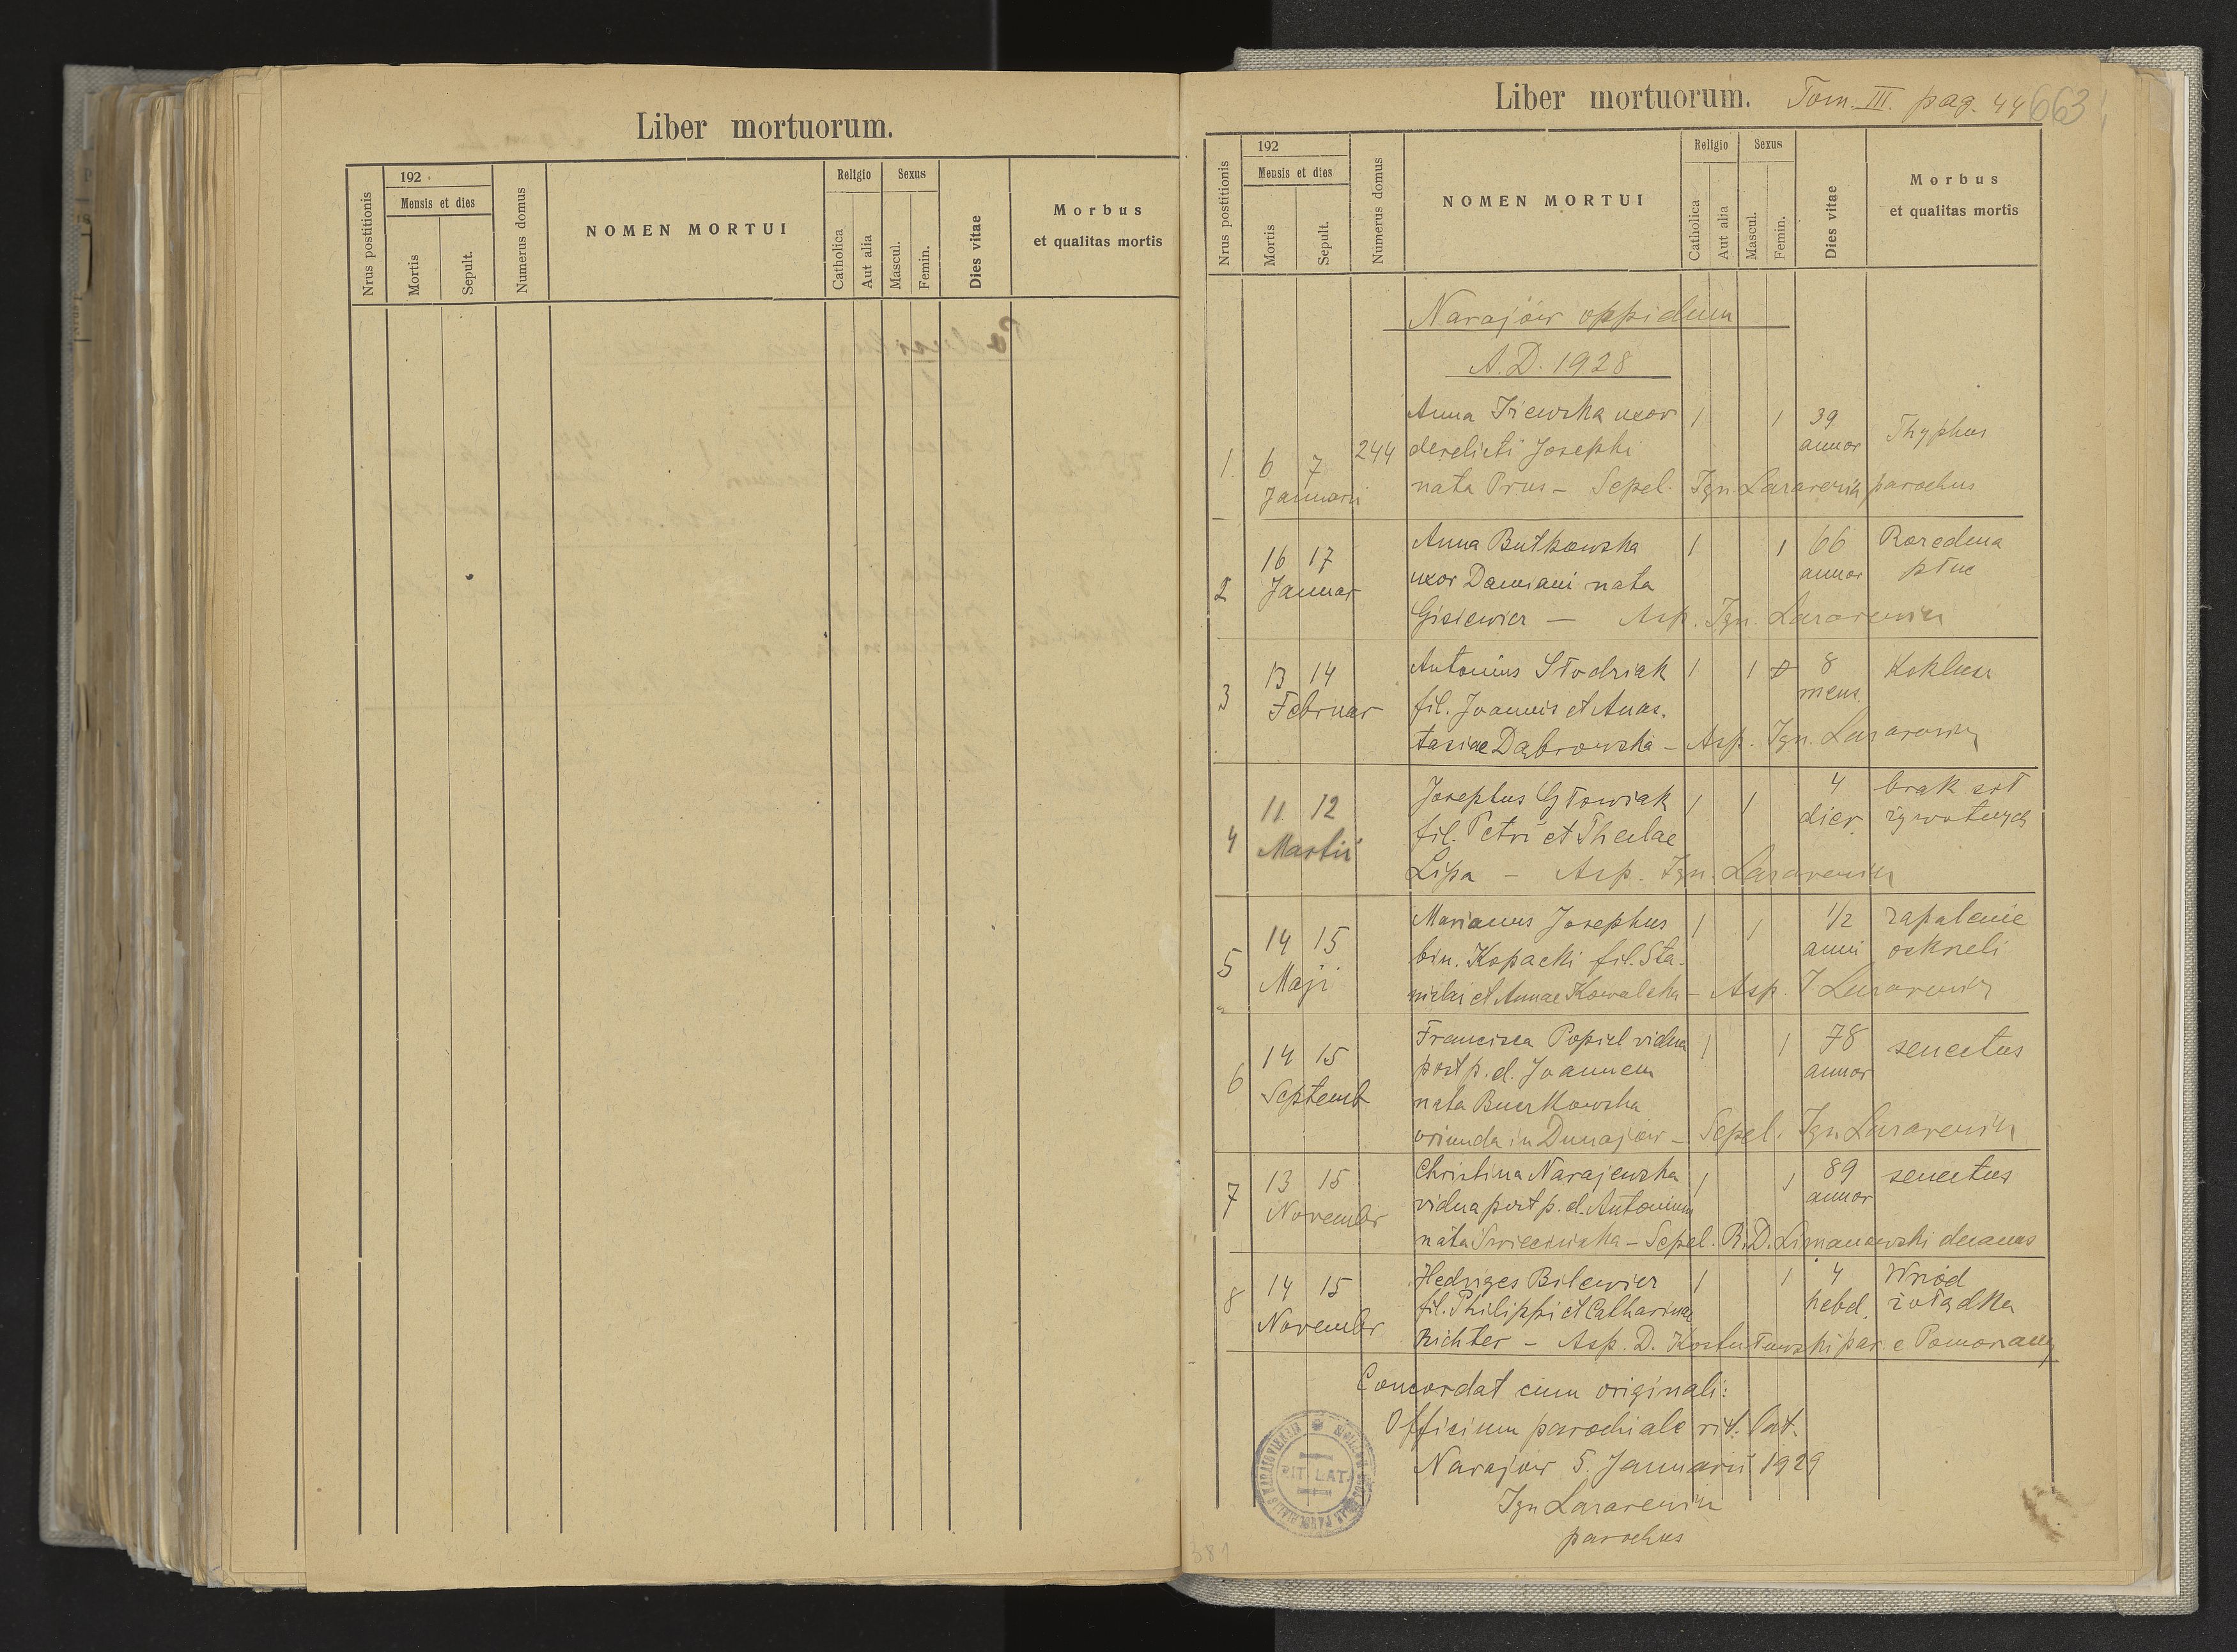 Liber mortuorum.
Nrus postitionis
192
Mensis et dies
Mortis
Sepult.
Numerus domus
NOMEN MORTUI
Religio
Catholica
Aut alia
Sexus
Mascul.
Femin.
Dies vitae
Morbus
et qualitas mortis
Liber mortuorum. Tom. III. pag. 44 663
Nrus postitionis
192
Mensis et dies
Mortis
Sepult.
Numerus domus
NOMEN MORTUI
Religio
Catholica
Aut alia
Sexus
Mascul.
Femin.
Dies vitae
Morbus
et qualitas mortis
Narajów oppidum
A.D. 1928
Anna uxor 1 1 39
1. 6 7 244 derelicti Josephi annor Thyphus
Januarii nata Prus - Sepel. Ign. Lazarewicz parochus
Anna Butkowska 1 1 66 Rozedma
2 16 17 uxor Damiani nata annor płuc
Januar Gisiewicz - Asp. Ign. Lazarewicz
Antonius Słodziak 1 1 8 Koklusz
3 13 14 fil. Joannis et Anas- mens.
Februar tasiae Dąbrowska - Asp. Ign. Lazarewicz
Josephus Głowiak 1 1 4 brak sił
4 11 12 fil. Petri et Theclae dier. żywotnych
Martii Lipa - Asp. Ign. Lazarewicz
Marianus Josephus 1 1 1/2 zapalenie
5 14 15 bin. Kopacki fil. Sta- anni oskrzeli
Maji nislai et Annae Kowalska - Asp. I Lazarewicz
Francisca Popiel vidua 1 1 78 senectus
6 14 15 post p. d. Joannem annor
Septemb nata Buczkowska
oriunda in Dunajów - Sepel. Ign Lazarewicz
Christina Narajewska 1 1 89 senectus
7 13 15 vidua post p. d. Antonium annor
Novembr nata - Sepel. R. D. Limanowski decanus
Hedviges Bilewicz 1 1 4 Wrzód
8 14 15 fil. Philippi et Catharinae hebd. żołądka
Novembr Richter - Asp. D. par. e Pomorzany
Concordat cum originali:
Officium parochiale rit. lat.
Narajów 5. Januarii 1929
Ign Lazarewicz
parochus
RIT. LAT.
381